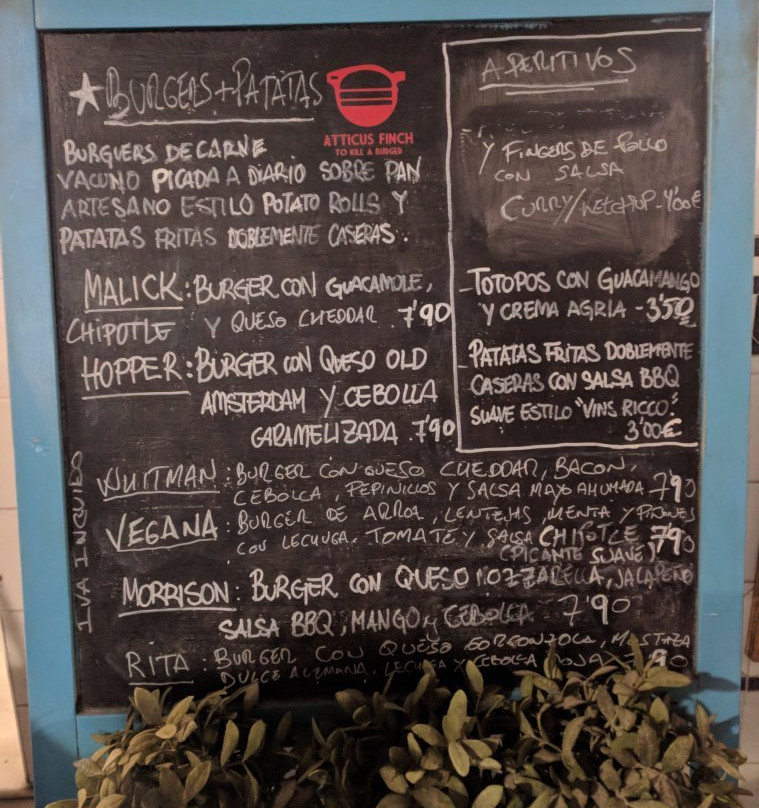 ★BURGERS+PATATAS
ATTICUS FINCH
TO KILL A BURGER
BURGUERS DE CARNE
VACUNO PICADA A DIARIO SOBRE PAN
ARTESANO ESTILO POTATO ROLLS Y
PATATAS FRITAS DOBLEMENTE CASERAS.
MALICK: BURGER CON GUACAMOLE,
CHIPOTLE Y QUESO CHEDDAR. 7'90
HOPPER: BURGER CON QUESO OLD
AMSTERDAM Y CEBOLLA
CARAMELIZADA. 7'90
APERITIVOS
Y FINGERS DE POLLO
CON SALSA
CURRY/KETCHUP-4'00€
-TOTOPOS CON GUACAMANGO
Y CREMA AGRIA - 3'50€
-PATATAS FRITAS DOBLEMENTE
CASERAS CON SALSA BBQ
SUAVE ESTILO "VINS RICCO".
3'00€
WHITMAN: BURGER CON QUESO CHEDDAR, BACON,
CEBOLLA, PEPINILLOS Y SALSA MAYO AHUMADA 7'90
VEGANA: BURGER DE ARROZ, LENTEJAS, MENTA Y PIÑONES
CON LECHUGA, TOMATE Y SALSA CHIPOTLE 7'90
(PICANTE SUAVE)
MORRISON: BURGER CON QUESO MOZZARELLA, JALAPEÑO
SALSA BBQ, MANGO y CEBOLLA 7'90
RITA: BURGER CON QUESO GORGONZOLA, MOSTAZA
DULCE ALEMANA, LECHUGA Y CEBOLLA ROJA 90
IVA INCLUIDO